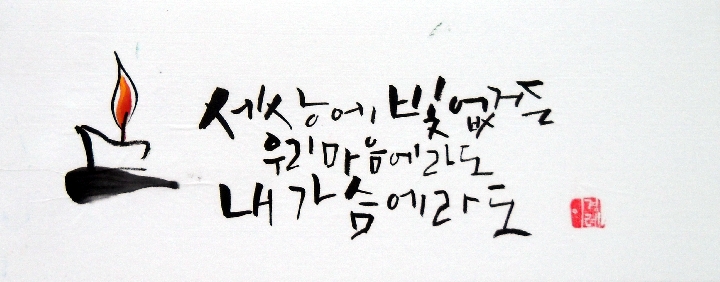 세상에 빛 없거든
우리 마음에라도
내 가슴에라도